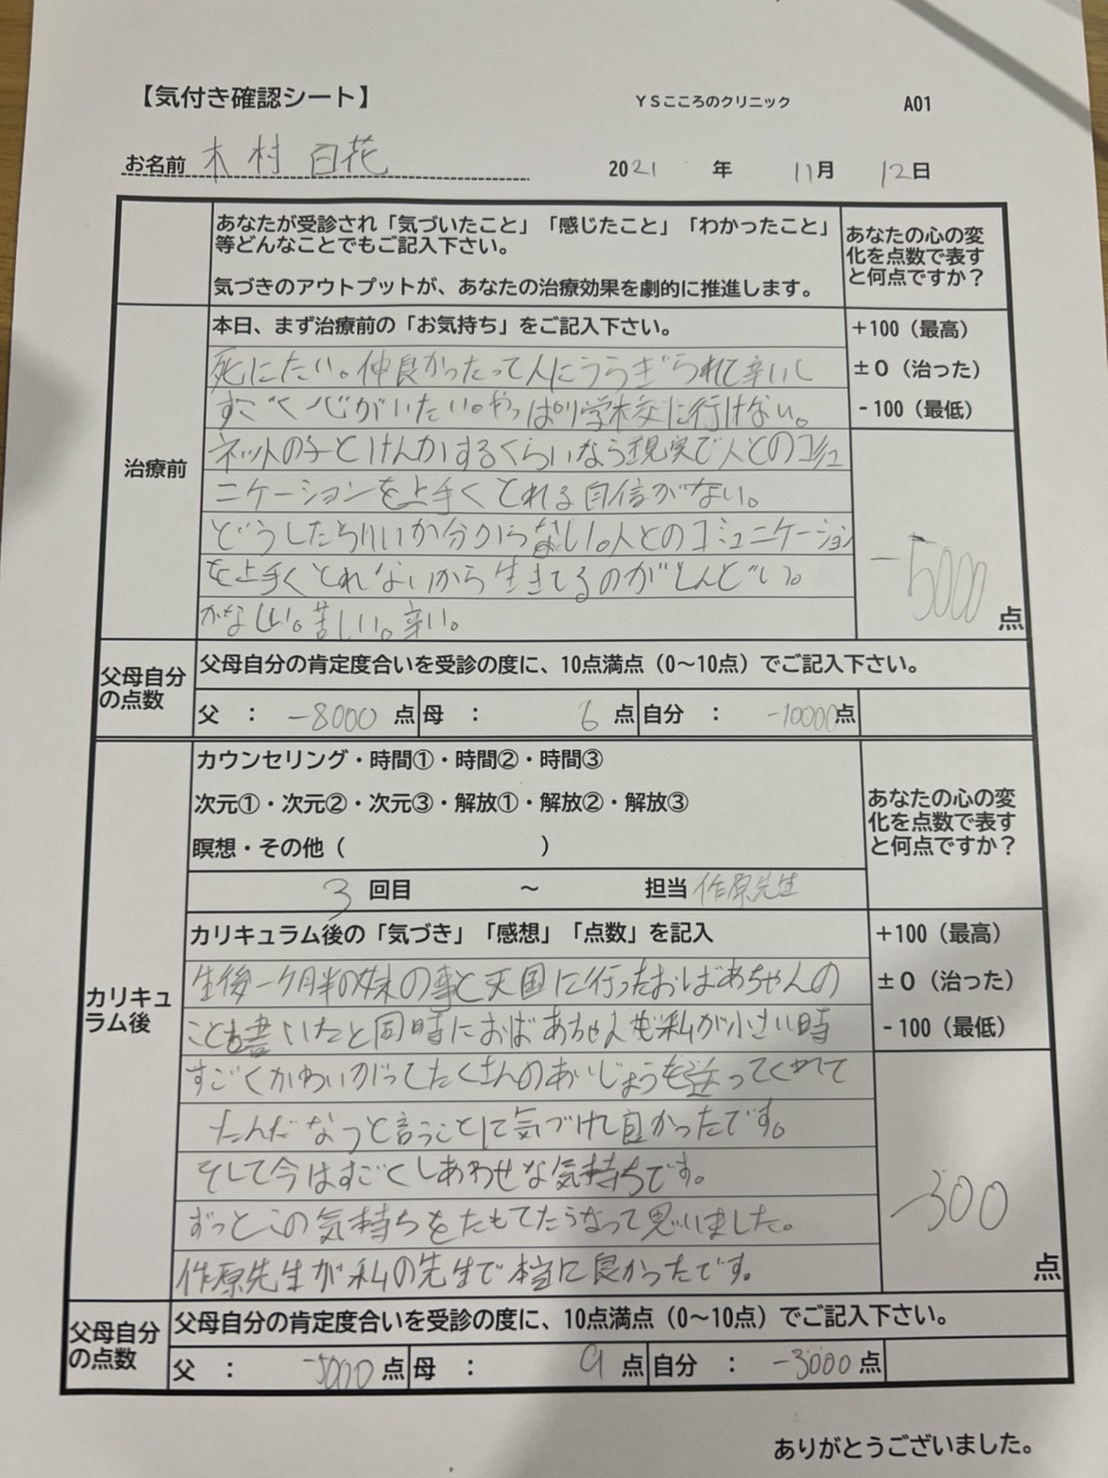 【気付き確認シート】 YSこころのクリニック A01
お名前 木村 百花 2021年 11月 12日
あなたが受診され「気づいたこと」「感じたこと」「わかったこと」
等どんなことでもご記入下さい。
気づきのアウトプットが、あなたの治療効果を劇的に推進します。
あなたの心の変
化を点数で表す
と何点ですか？
治療前
本日、まず治療前の「お気持ち」をご記入下さい。
死にたい。仲良かったって人にうらぎられて辛いし
すごく心がいたい。やっぱり学校に行けない。
ネットの子とけんかするくらいなら現実で人とのコミュ
ニケーションを上手くとれる自信がない。
どうしたらいいか分からない。人とのコミュニケーション
を上手くとれないから生きてるのがしんどい。
かなしい。苦しい。辛い。
+100（最高）
±0（治った）
-100（最低）
-5000点
父母自分
の点数
父母自分の肯定度合いを受診の度に、10点満点（0～10点）でご記入下さい。
父 ： -8000 点 母 ： 6 点 自分 ： -10000点
カリキュ
ラム後
カウンセリング・時間①・時間②・時間③
次元①・次元②・次元③・解放①・解放②・解放③
瞑想・その他（ ）
3 回目 ～ 担当 作原先生
あなたの心の変
化を点数で表す
と何点ですか？
カリキュラム後の「気づき」「感想」「点数」を記入
生後一ヶ月半の妹の事と天国に行ったおばあちゃんの
ことも書いたと同時におばあちゃんも私が小さい時
すごくかわいがってたくさんのあいじょうも送ってくれて
たんだなっと言うことに気づけて良かったです。
そして今はすごくしあわせな気持ちです。
ずっとこの気持ちをたもてたらなって思いました。
作原先生が私の先生で本当に良かったです。
+100（最高）
±0（治った）
-100（最低）
-300
点
父母自分
の点数
父母自分の肯定度合いを受診の度に、10点満点（0～10点）でご記入下さい。
父 ： -5000 点 母 ： 9 点 自分 ： -3000 点
ありがとうございました。